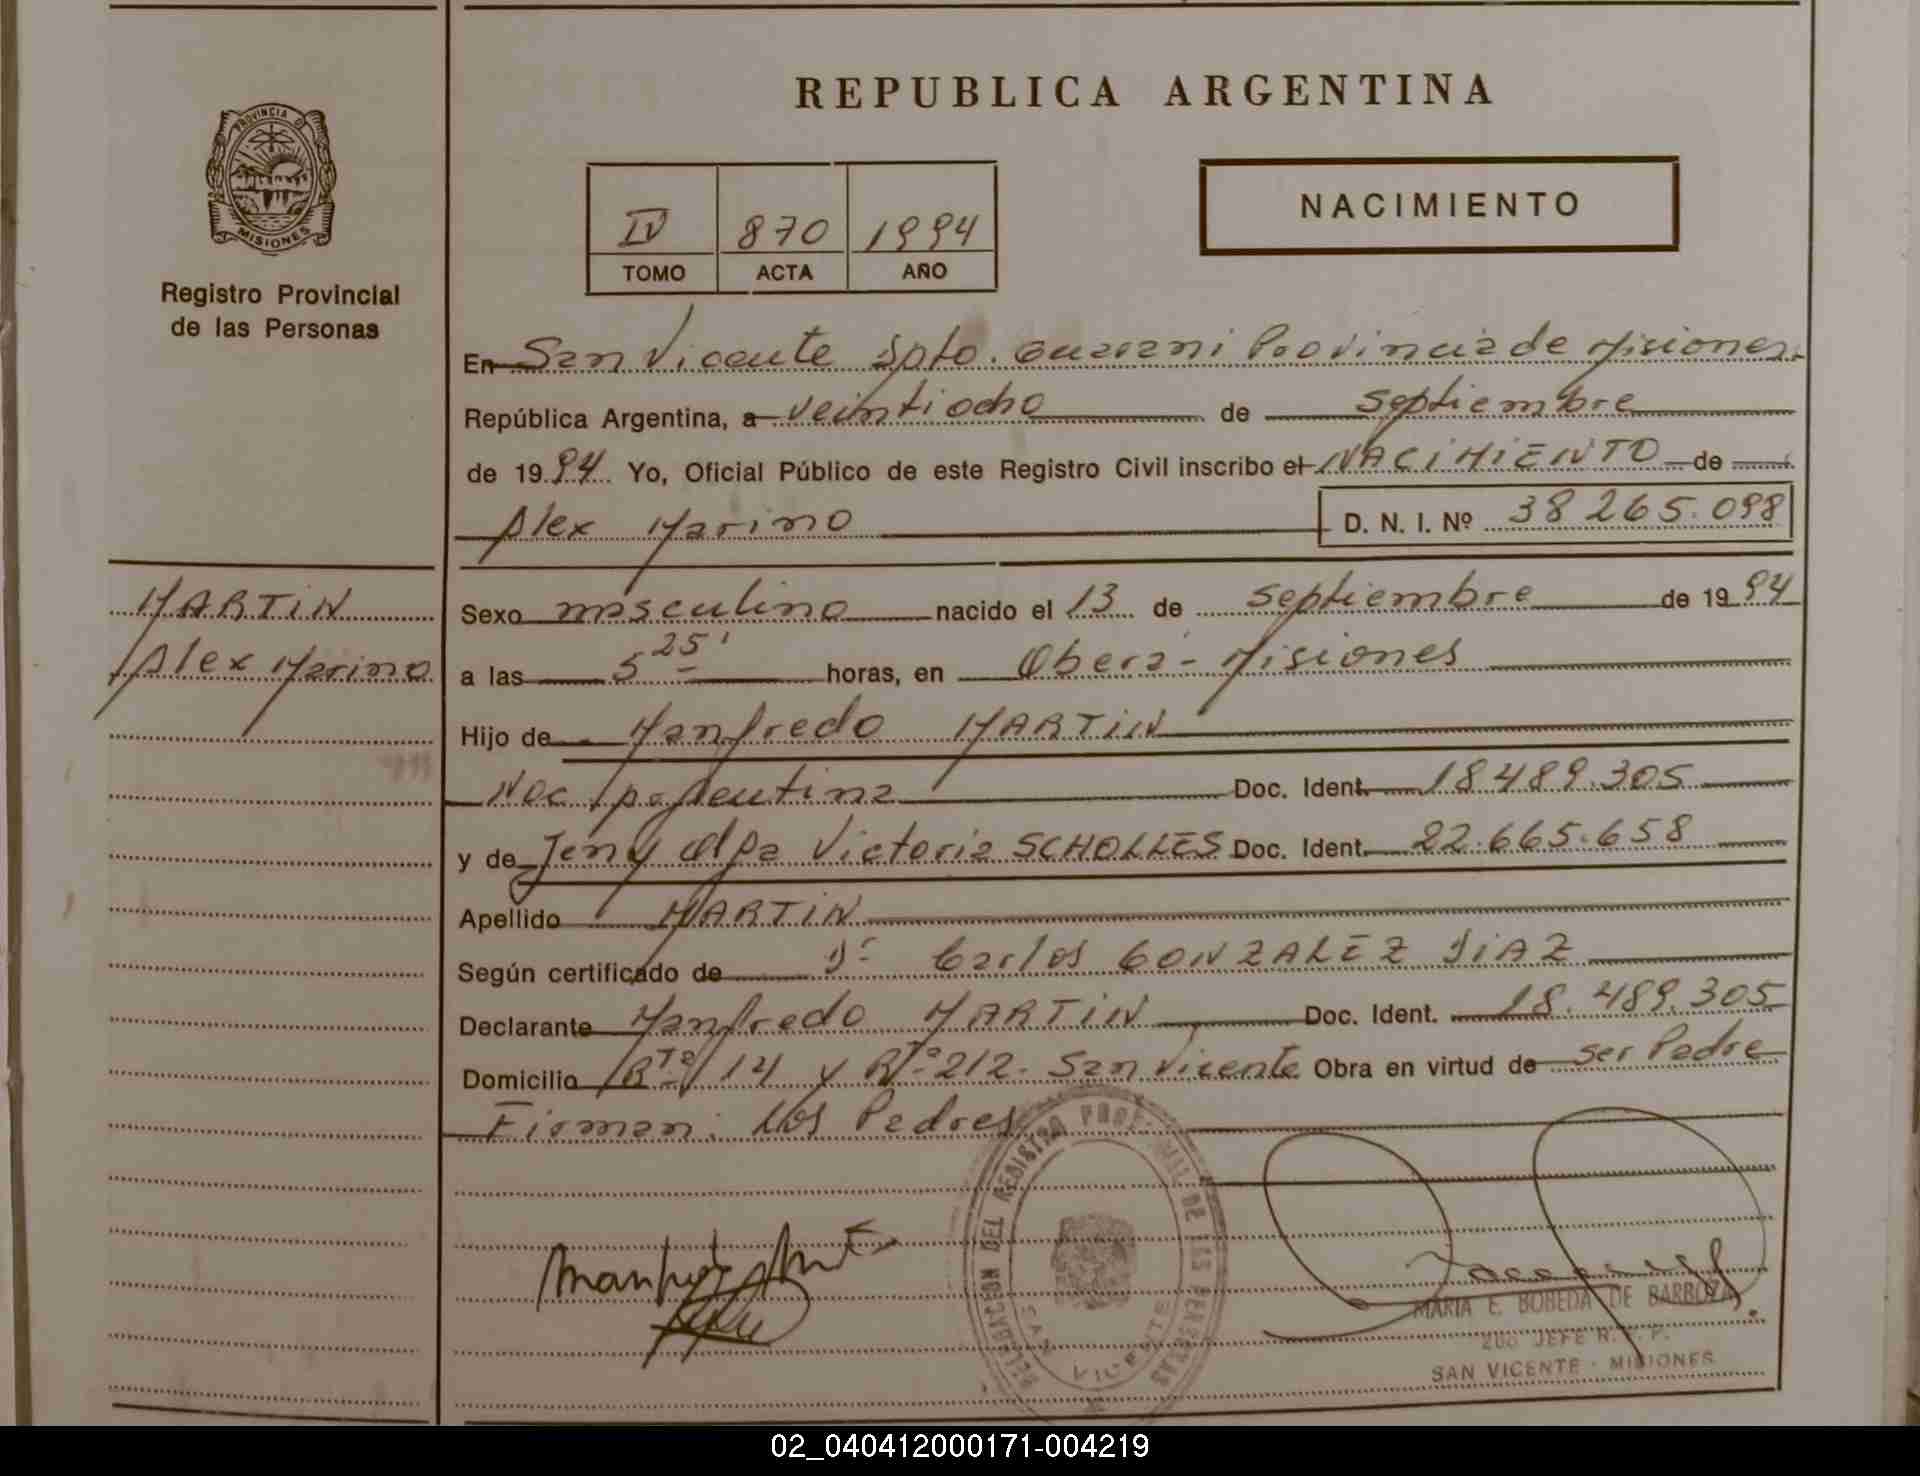 REPUBLICA ARGENTINA
PROVINCIA D
MISIONES
Registro Provincial
de las Personas
IV 870 1994
TOMO ACTA AÑO
NACIMIENTO
En San Vicente Dpto. Guarani Provincia de Misiones.
República Argentina, a veintiocho de septiembre
de 1994 Yo, Oficial Público de este Registro Civil inscribo el NACIMIENTO de
Alex Marino D. N. I. Nº 38265.098
MARTIN
Alex Marino
Sexo masculino nacido el 13 de septiembre de 1994
a las 5 25' horas, en Oberá - Misiones
Hijo de Manfredo MARTIN
Nac Argentina Doc. Ident. 18489.305
y de Jeny Olga Victoria SCHOLLES Doc. Ident. 22.665.658
Apellido MARTIN
Según certificado de Dr Carlos GONZALEZ DIAZ
Declarante Manfredo MARTIN Doc. Ident. 18.489.305
Domicilio Rta 14 y Rta 212. San Vicente Obra en virtud de ser Padre
Firman: Los Padres
DELEGACION DEL REGISTRO PROVINCIAL DE LAS PERSONAS
SAN VICENTE
MARIA E. BOBEDA DE BARBOZA
2do JEFE R. P. P.
SAN VICENTE - MISIONES
02_040412000171-004219